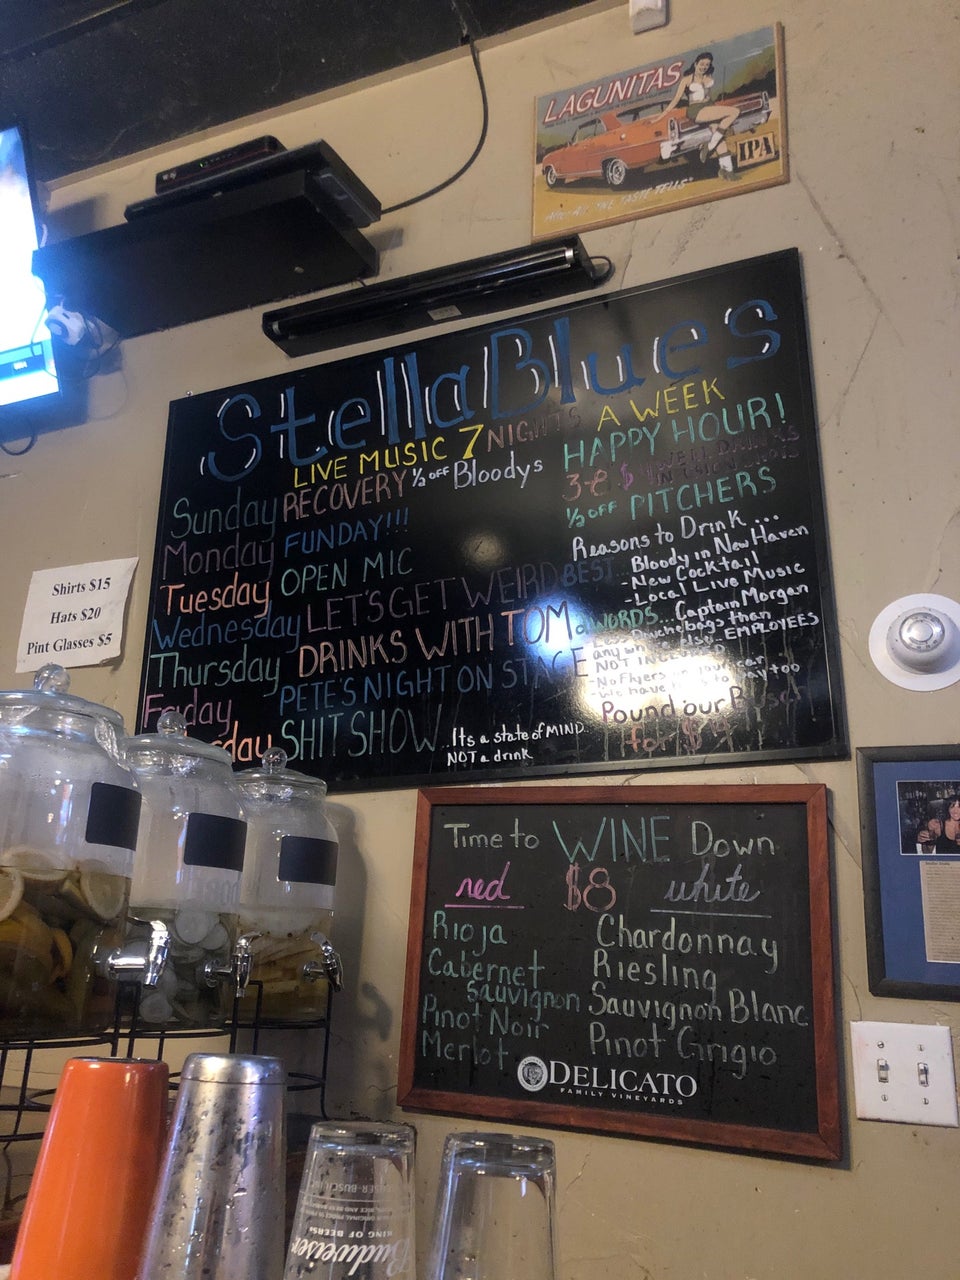 LAGUNITAS
IPA
Stella Blues
LIVE MUSIC 7 NIGHTS A WEEK
Sunday RECOVERY 1/2 OFF Bloodys
Monday FUNDAY!!!
Tuesday OPEN MIC
Wednesday LET'S GET WEIRD
Thursday DRINKS WITH TOM
Friday PETE'S NIGHT ON STAGE
SHIT SHOW ..Its a state of MIND..
NOT a drink
HAPPY HOUR!
3-8 $ WELL DRINKS
1/2 OFF PITCHERS
Reasons to Drink ...
BEST - Bloody in New Haven
- New Cocktail
- Local Live Music
WORDS... Captain Morgan
EMPLOYEES
NOT
- No Flyers on your car
- We have too
Pound our
for $
Shirts $15
Hats $20
Pint Glasses $5
Time to WINE Down
red $8 white
Rioja
Cabernet
Sauvignon
Pinot Noir
Merlot
Chardonnay
Riesling
Sauvignon Blanc
Pinot Grigio
DELICATO
FAMILY VINEYARDS
KING OF BEERS
Budweiser